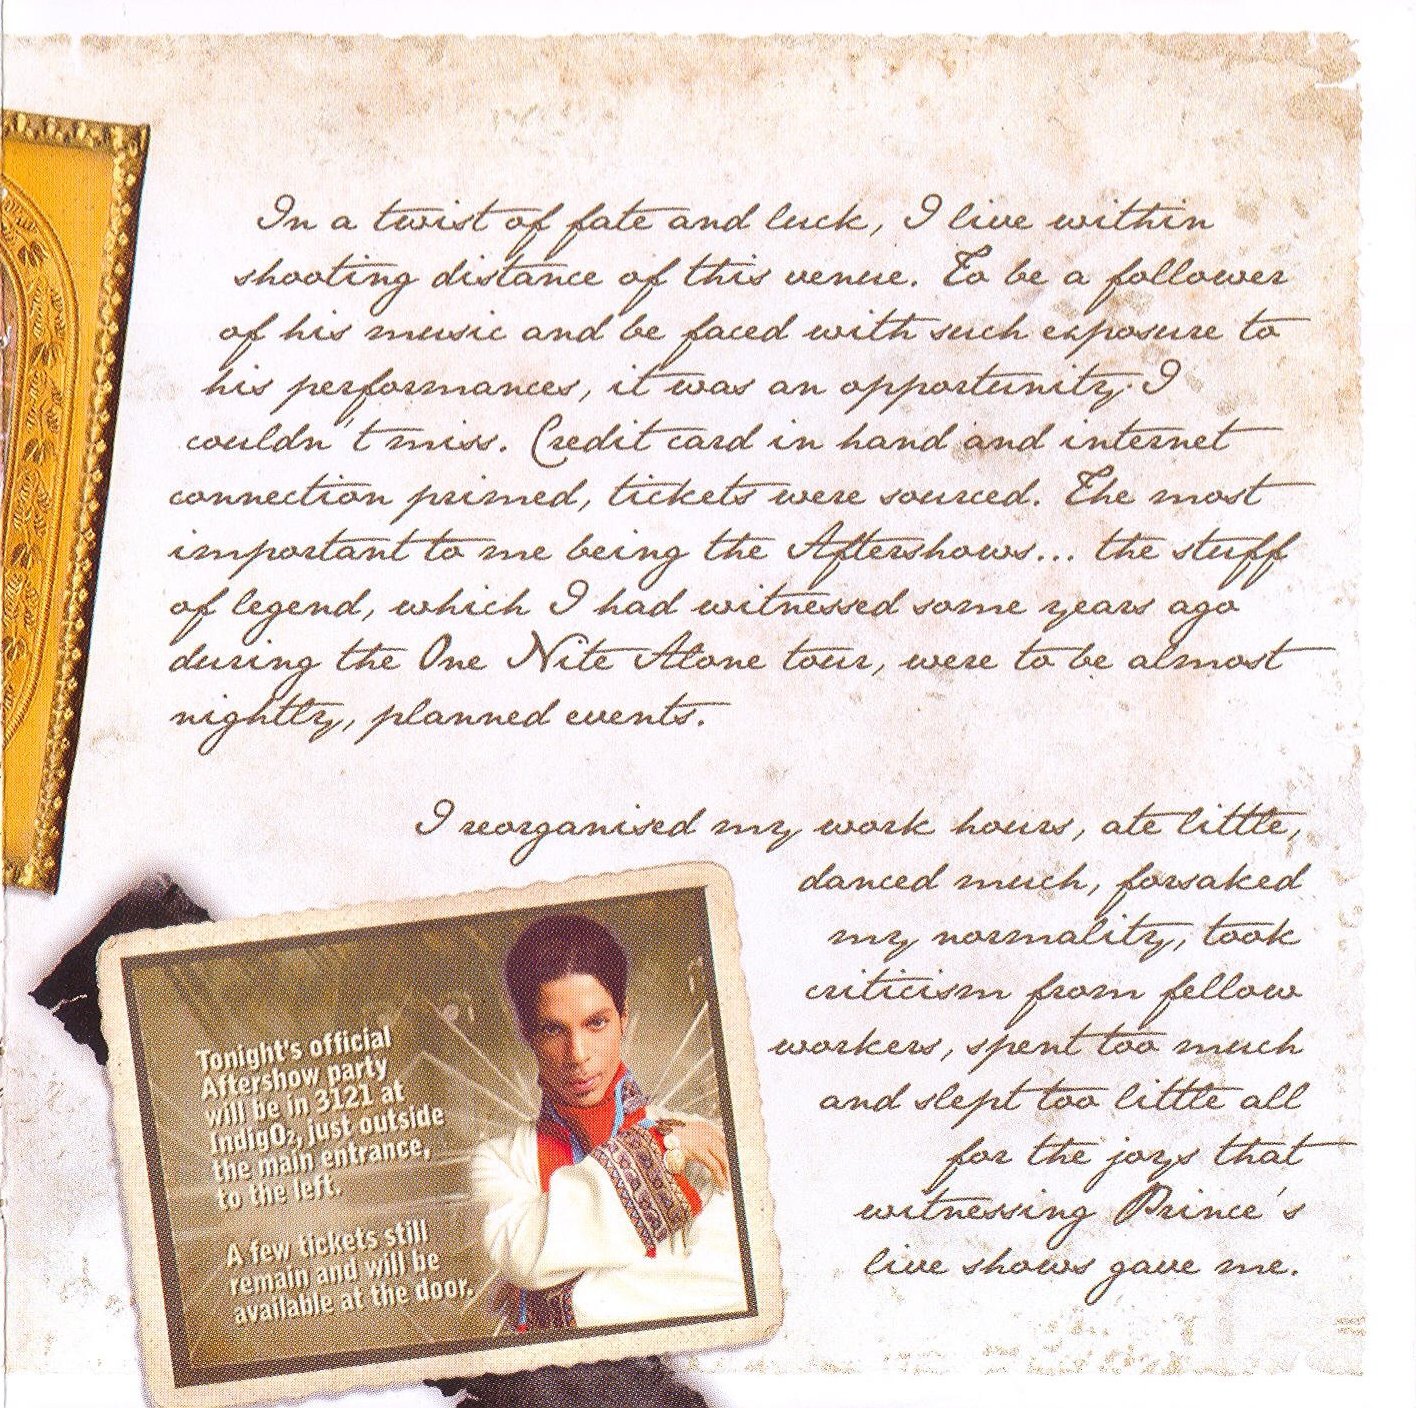 In a twist of fate and luck, I live within
shooting distance of this venue. To be a follower
of his music and be faced with such exposure to
his performances, it was an opportunity I
couldn't miss. Credit card in hand and internet
connection primed, tickets were sourced. The most
important to me being the Aftershows... the stuff
of legend, which I had witnessed some years ago
during the One Nite Alone tour, were to be almost
nightly, planned events.
I reorganised my work hours, ate little,
danced much, forsaked
my normality, took
criticism from fellow
workers, spent too much
and slept too little all
for the joys that
witnessing Prince's
live shows gave me.
Tonight's official
Aftershow party
will be in 3121 at
IndigO2, just outside
the main entrance,
to the left.
A few tickets still
remain and will be
available at the door.